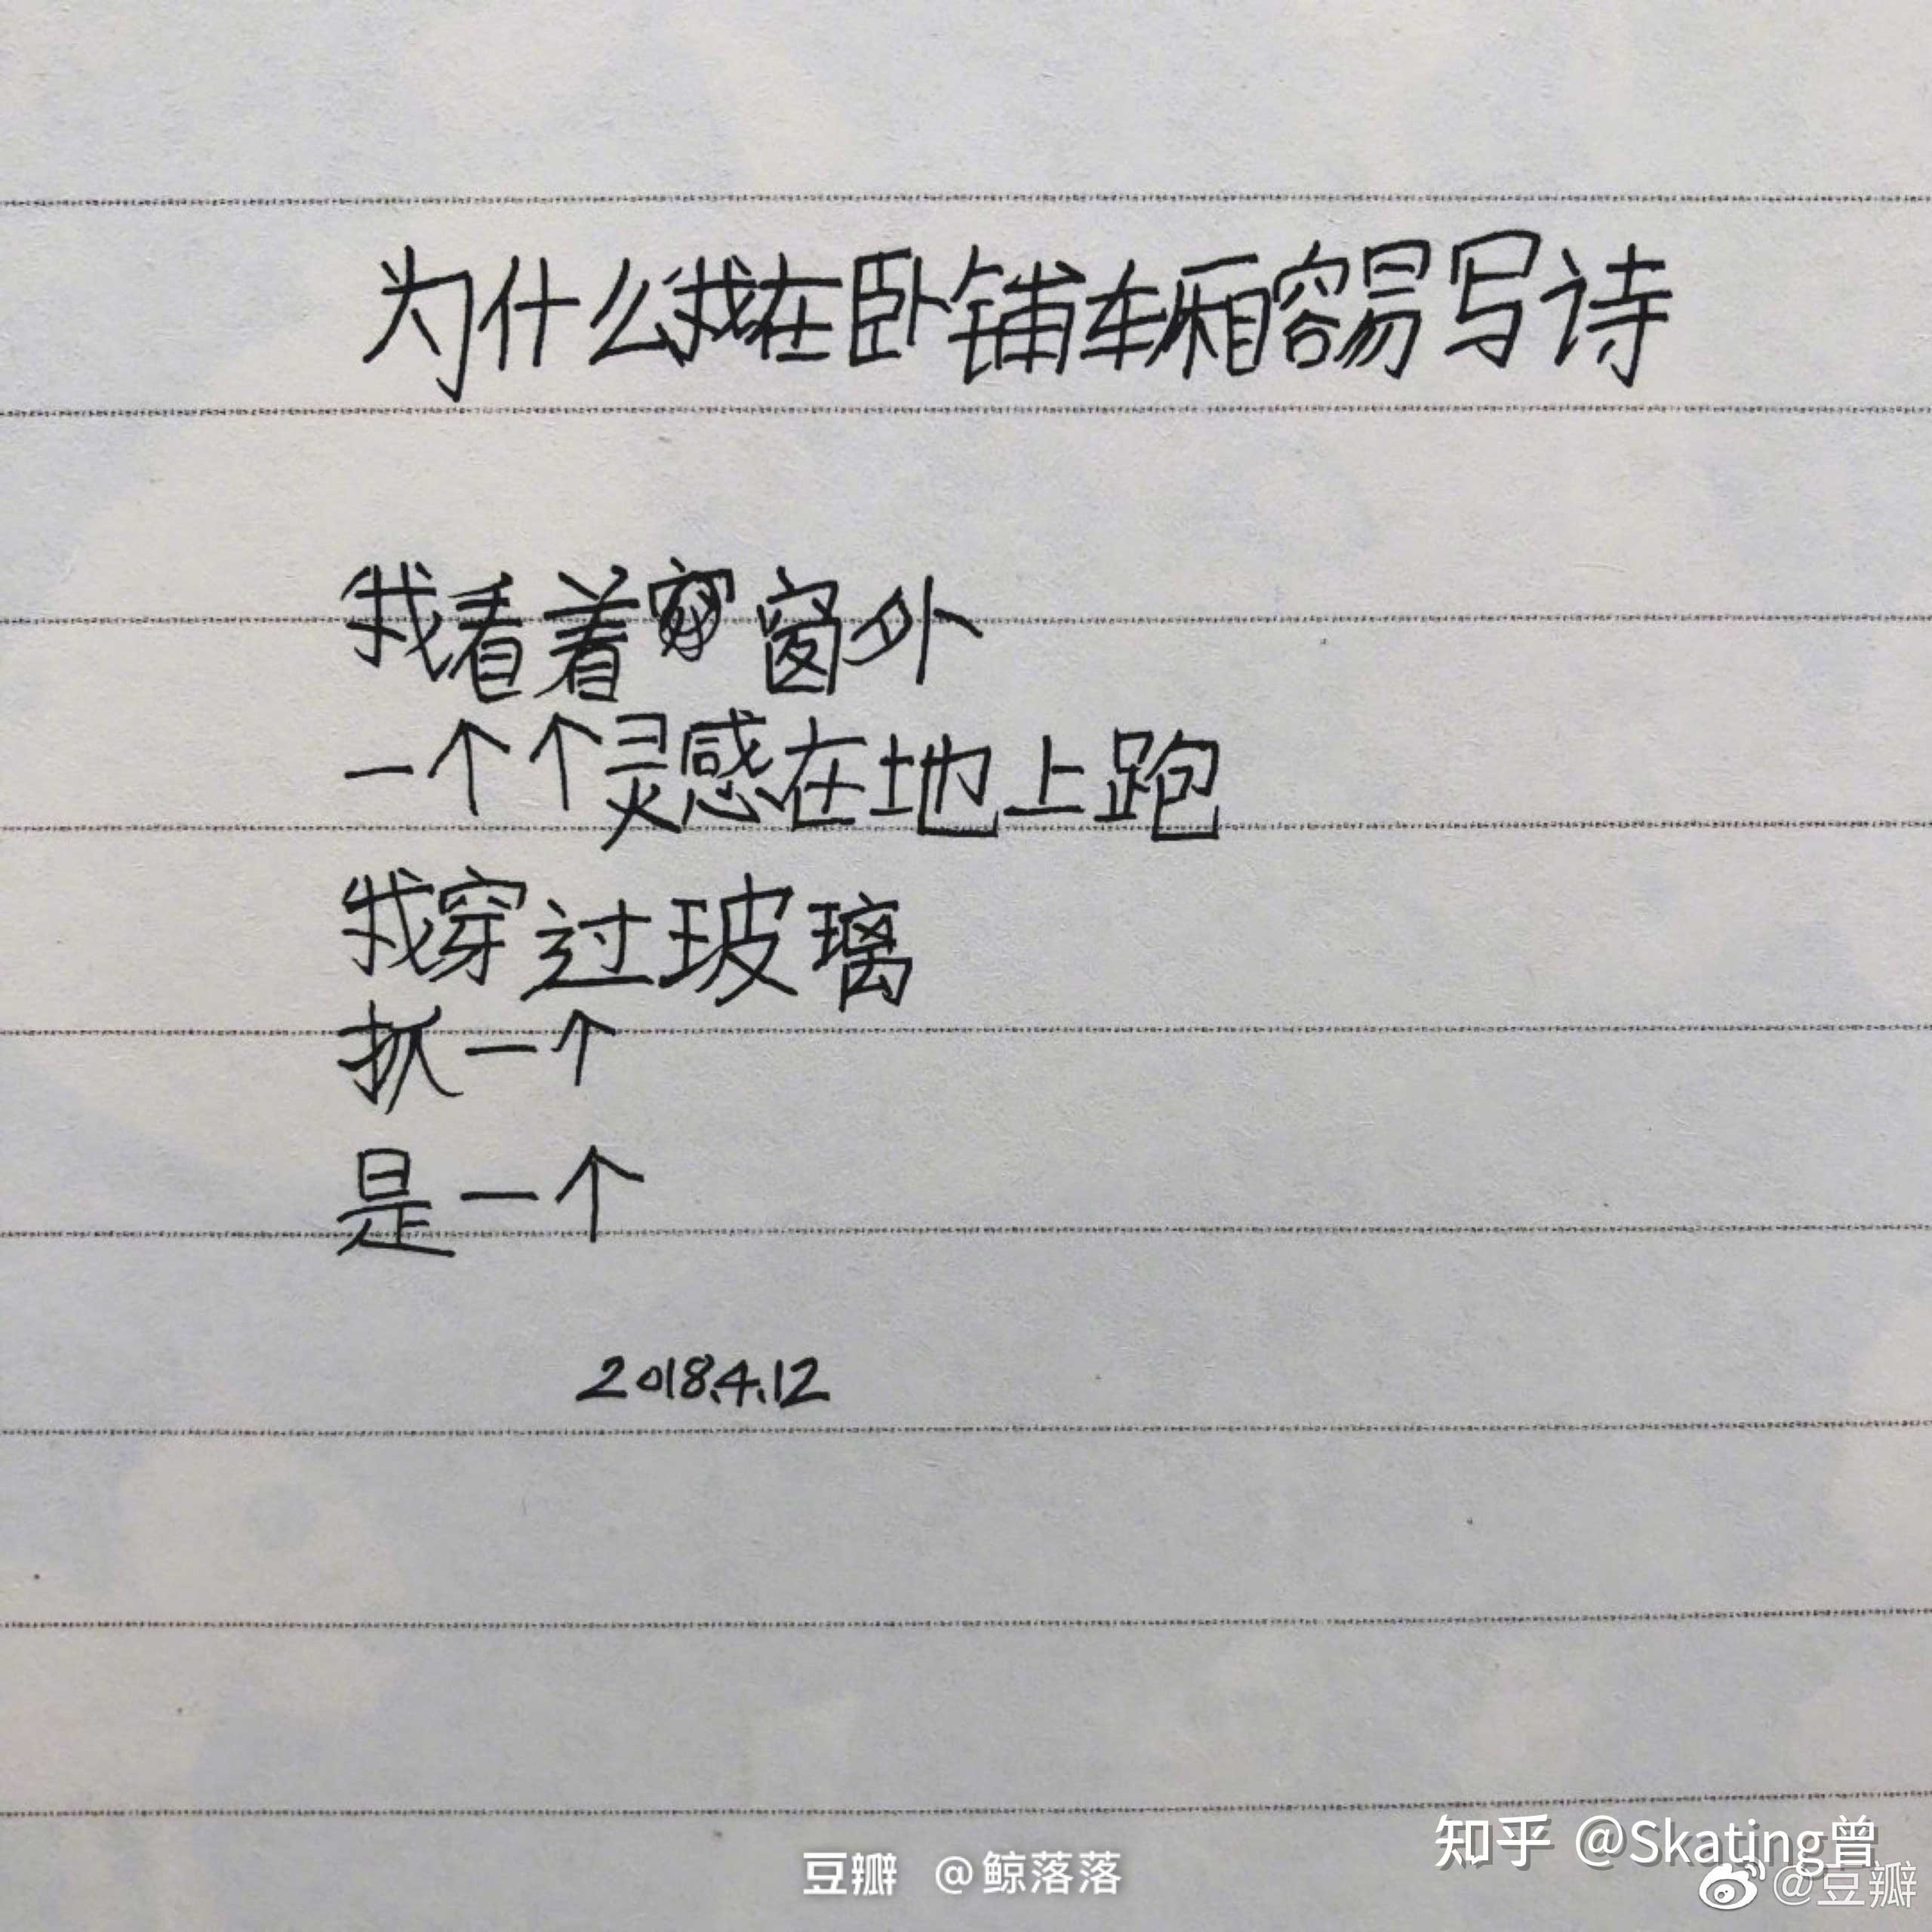 为什么我在卧铺车厢容易写诗
我看着窗外
一个个灵感在地上跑
我穿过玻璃
抓一个
是一个
2018.4.12
知乎 @Skating曾
豆瓣 @鲸落落
@豆瓣